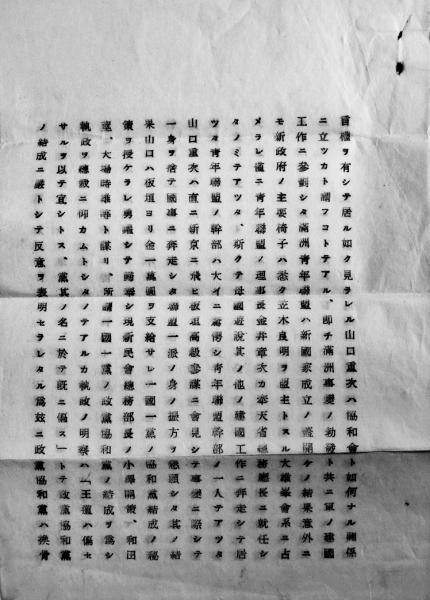 首權ヲ有シテ居ル如ク見ラレル山口重次ハ協和會ト如何ナル關係
ニ立ツカト謂フコトテアル、即チ滿洲事變ノ勃發ト共ニ軍ノ建國
工作ニ參劃シタ滿洲青年聯盟ハ新國家成立ノ蓋開ケノ結果意外ニ
モ新政府ノ主要椅子ハ悉ク笠木良明ヲ盟主トスル大雄峯會系ニ占
メラレ僅ニ青年聯盟ノ理事長金井章次カ奉天省總務廳長ニ就任シ
タノミテアツタ、斯クテ母國遊說其ノ他ノ建國工作ニ奔走シテ居
ツタ青年聯盟ノ幹部ハ大イニ シ青年聯盟幹部ノ一人テアツタ
山口重次ハ直ニ新京ニ飛ヒ板垣高級參謀ニ會見シテ事變ニ際シテ
一身ヲ捨テ國事ニ奔走シタ聯盟一派ノ身ノ振方ヲ懇願シタ其ノ結
果山口ハ板垣ヨリ金一萬圓ヲ支給サレ一國一黨ノ協和黨結成ノ秘
策ヲ授ケラレ勇躍シテ歸奉シ現新民會總務部長ノ小澤開策、和田
 、大場時雄等ト謀リ、所謂一國一黨ノ政黨協和黨ノ結成ヲ爲シ
執政ヲ總裁ニ仰カムトシタノテアルカ執政ノ明察ハ「王道ハ偏セ
サルヲ以テ宜シトス、黨其ノ名ニ於テ既ニ偏ス」トテ政黨協和黨
ノ結成ニ嚴トシテ反意ヲ表明セラレタル爲玆ニ政黨協和黨ハ換骨